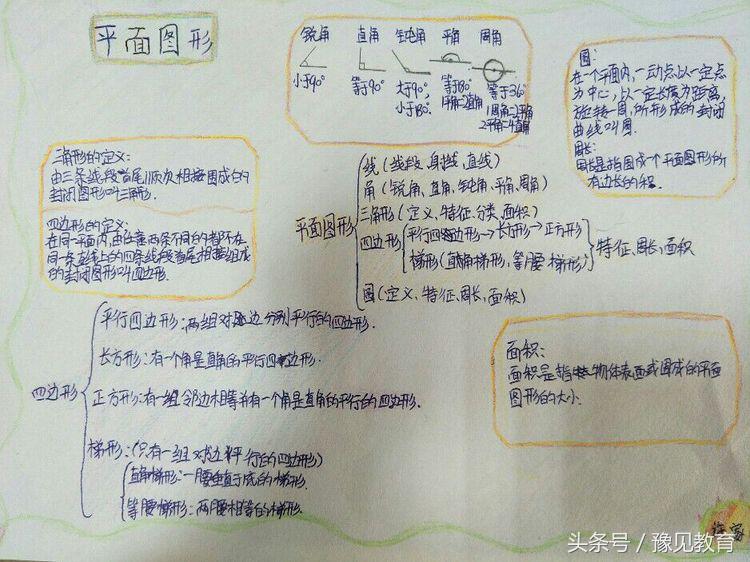 平面图形
锐角 直角 钝角 平角 周角
小于90° 等于90° 大于90°, 等于180° 等于36°
小于180° 1平角=2直角 1周角=2平角
2平角=4直角
圆:
在一个平面内,一动点以一定点
为中心,以一定长度为距离,
旋转一周,所形成的封闭
曲线叫圆.
周长:
周长是指围成一个平面图形的所
有边长的积.
三角形的定义:
由三条线段首尾顺次相接围成的
封闭图形叫三角形.
四边形的定义:
在同一平面内,由任意两条不同的都不在
同一条直线上的四条线段首尾相接组成
的封闭图形叫四边形.
平面图形
线(线段、射线、直线)
角(锐角、直角、钝角、平角、周角)
三角形(定义、特征、分类、面积)
四边形
平行四边形→长方形→正方形
梯形(直角梯形,等腰梯形)
特征、周长、面积
圆(定义、特征、周长、面积)
四边形
平行四边形:两组对边分别平行的四边形.
长方形:有一个角是直角的平行四边形.
正方形:有一组邻边相等并有一个角是直角的平行的四边形.
梯形:(只有一组对边平行的四边形)
直角梯形:一腰垂直于底的梯形
等腰梯形:两腰相等的梯形.
面积:
面积是指物体表面或围成的平面
图形的大小.
头条号 / 豫见教育